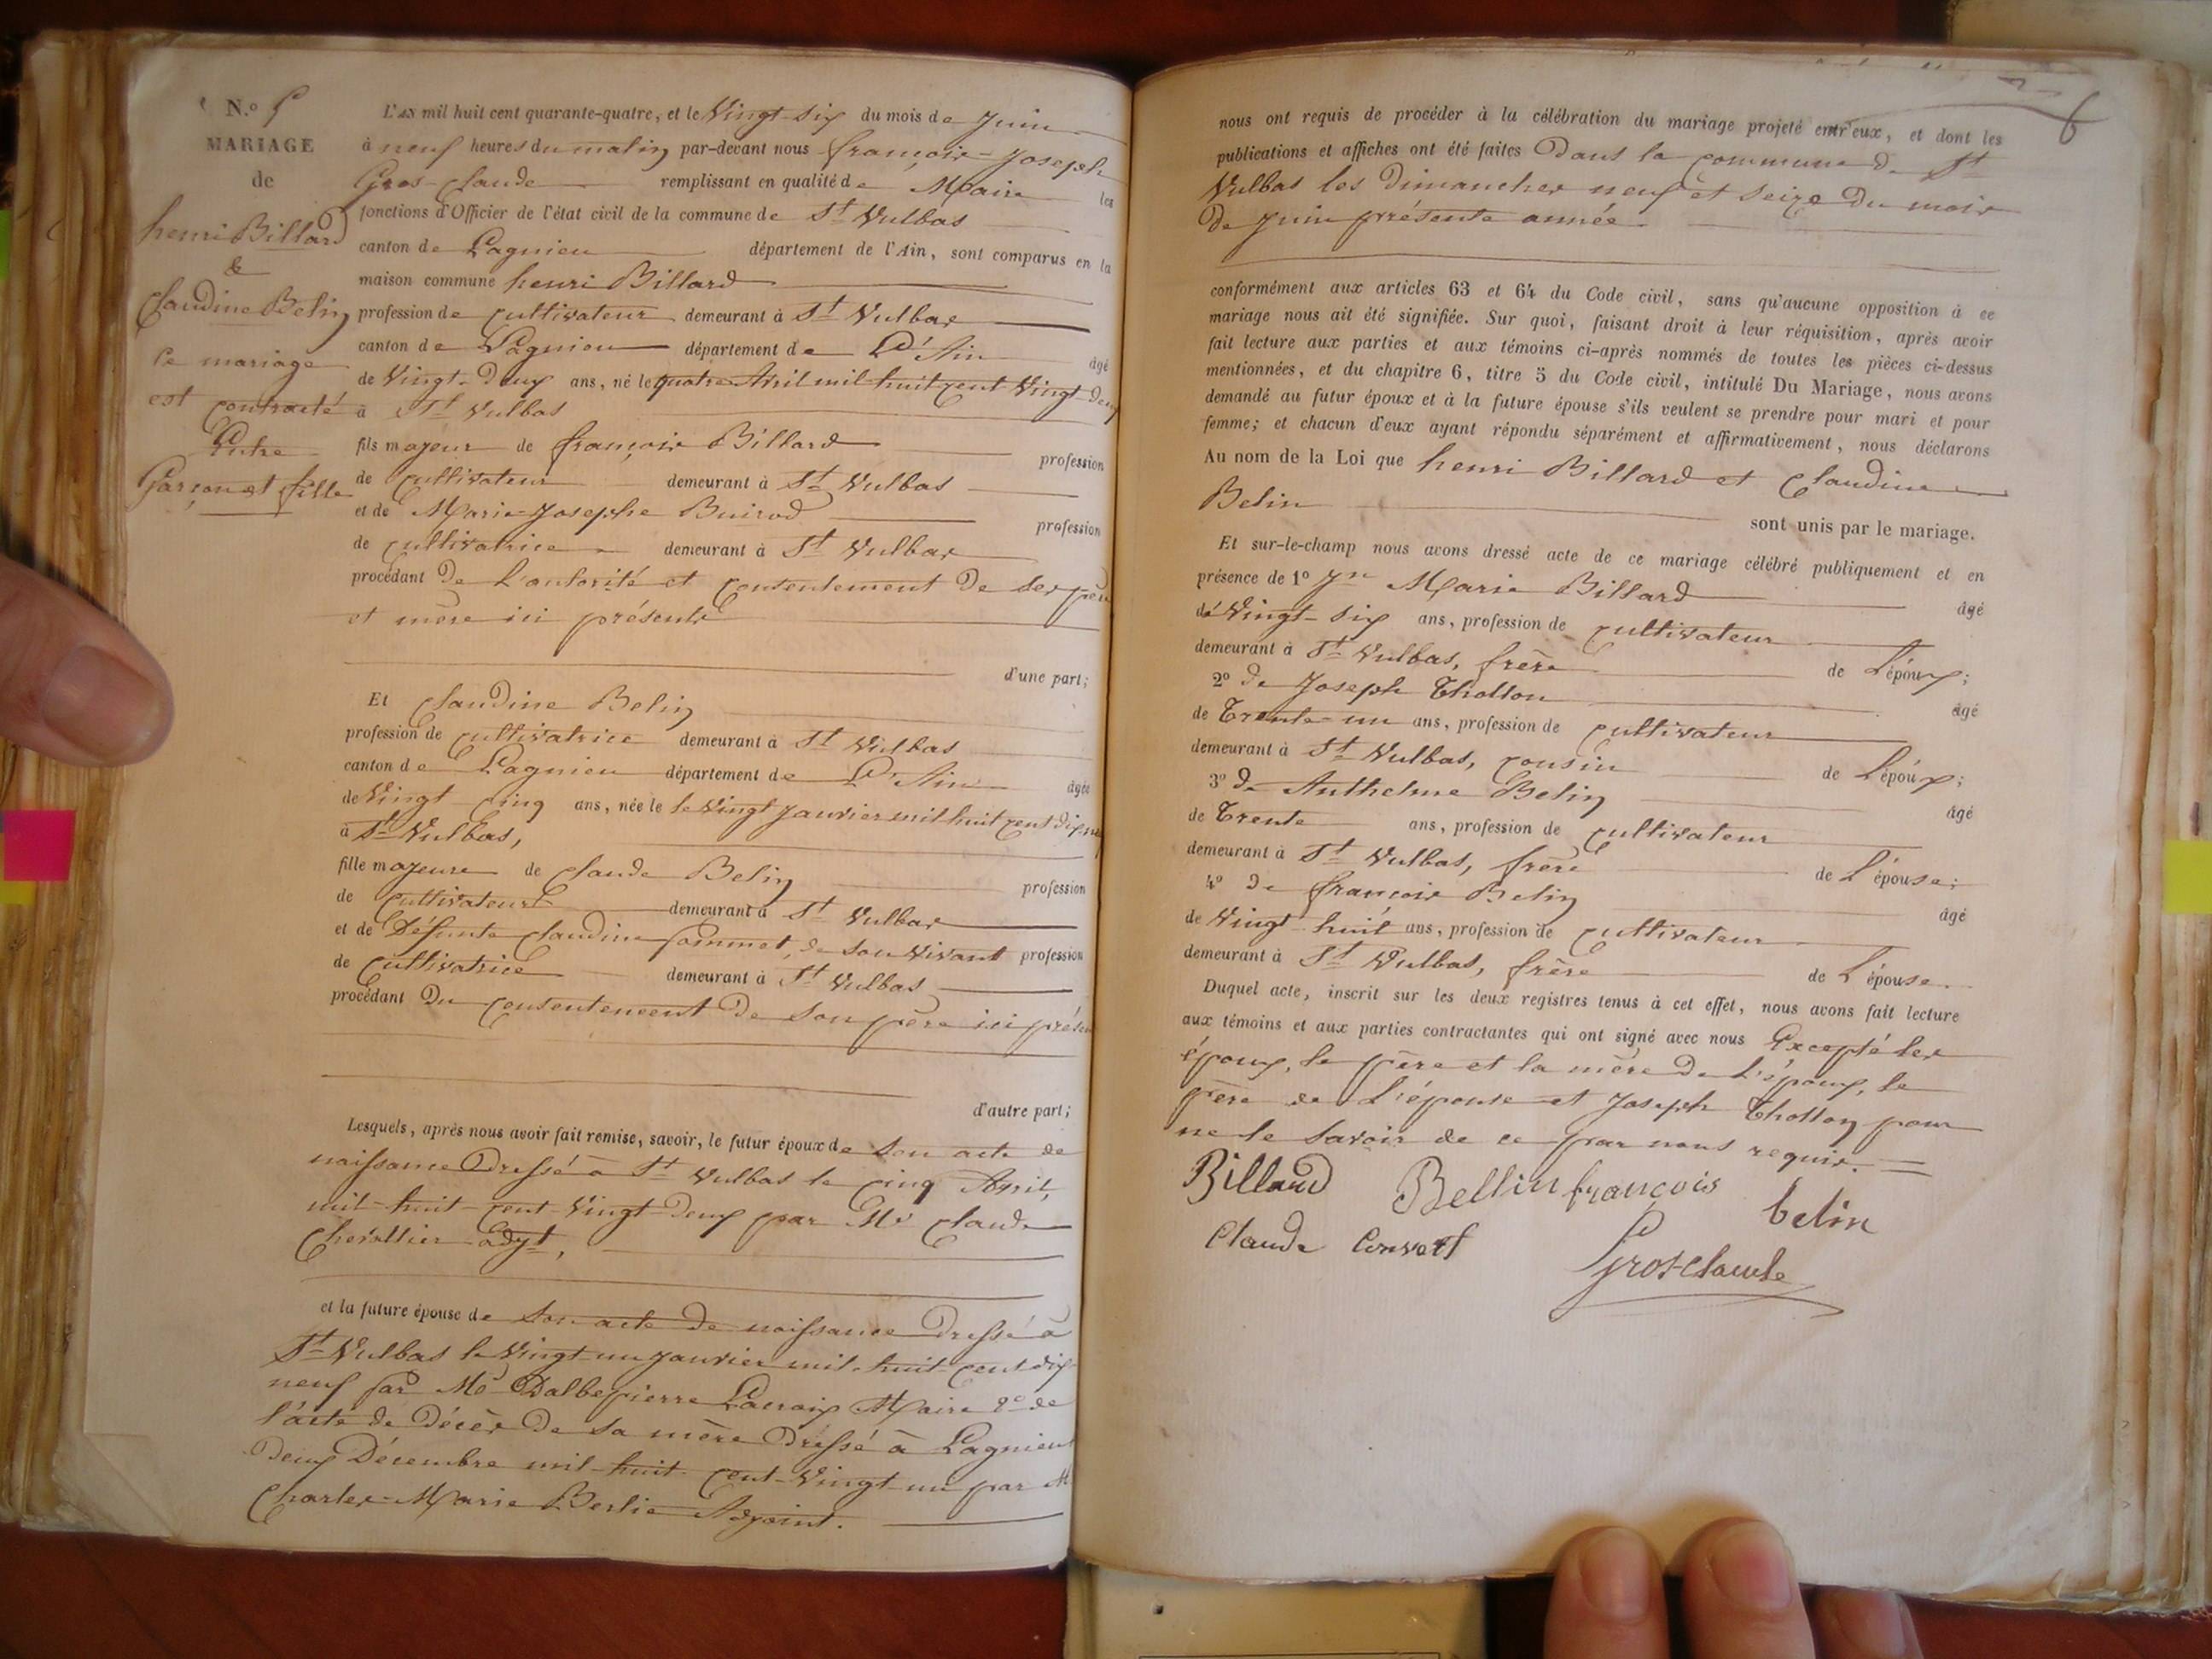 N.º 5
MARIAGE
de
henri Billard
&
Claudine Belin
Ce mariage
est contracté
Entre
Garçon et fille
L'AN mil huit cent quarante-quatre, et le Vingt-six du mois de Juin
à neuf heures du matin par-devant nous françois-Joseph
Gros-Claude remplissant en qualité de Maire les
fonctions d'Officier de l'état civil de la commune de St Vulbas
canton de Lagnieu département de l'Ain, sont comparus en la
maison commune henri Billard
profession de cultivateur demeurant à St Vulbas
canton de Lagnieu département de L'Ain âgé
de Vingt-Deux ans, né le quatre Avril mil-huit-cent Vingt-Deux
à St Vulbas
fils majeur de françois Billard profession
de Cultivateur demeurant à St Vulbas
et de Marie-Josephe Buirod profession
de cultivatrice demeurant à St Vulbas
procédant De L'autorité et consentement De ses père
et mère ici présents
d'une part;
Et Claudine Belin
profession de cultivatrice demeurant à St Vulbas
canton de Lagnieu département de L'Ain âgée
de Vingt-cinq ans, née le le Vingt Janvier mil huit cent dix-neuf
à St Vulbas,
fille majeure de Claude Belin profession
de Cultivateur demeurant à St Vulbas
et de Défunte Claudine Sommet, de son vivant profession
de Cultivatrice demeurant à St Vulbas
procédant Du Consentement De Son père ici présent
d'autre part;
Lesquels, après nous avoir fait remise, savoir, le futur époux de Son acte de
naissance Dressé à St Vulbas le Cinq Avril,
mil-huit-cent-Vingt-Deux par Mr Claude
Chevallier adjt,
et la future épouse de Son acte De naissance Dressé à
St Vulbas le Vingt-un Janvier mil-huit-cent dix-
neuf par Mr Dalbepierre Lacroix Maire 2º de
L'acte de Décès De sa mère Dressé à Lagnieu
Deux Décembre mil-huit-cent-Vingt-un par M
Charles-Marie Berlie Adjoint.
6
nous ont requis de procéder à la célébration du mariage projeté entr'eux, et dont les
publications et affiches ont été faites Dans la commune de St
Vulbas les Dimanches neuf et Seize Du mois
De Juin présente année
conformément aux articles 63 et 64 du Code civil, sans qu'aucune opposition à ce
mariage nous ait été signifiée. Sur quoi, faisant droit à leur réquisition, après avoir
fait lecture aux parties et aux témoins ci-après nommés de toutes les pièces ci-dessus
mentionnées, et du chapitre 6, titre 5 du Code civil, intitulé Du Mariage, nous avons
demandé au futur époux et à la future épouse s'ils veulent se prendre pour mari et pour
femme; et chacun d'eux ayant répondu séparément et affirmativement, nous déclarons
Au nom de la Loi que henri Billard et Claudine
Belin sont unis par le mariage.
Et sur-le-champ nous avons dressé acte de ce mariage célébré publiquement et en
présence de 1º Jn Marie Billard âgé
de Vingt-six ans, profession de cultivateur
demeurant à St Vulbas, frère de L'époux;
2º De Joseph Thollon âgé
de Trente-un ans, profession de cultivateur
demeurant à St Vulbas, cousin de L'époux;
3º De Anthelme Belin âgé
de Trente ans, profession de cultivateur
demeurant à St Vulbas, frère de L'épouse;
4º De françois Belin âgé
de Vingt-huit ans, profession de cultivateur
demeurant à St Vulbas, frère de L'épouse.
Duquel acte, inscrit sur les deux registres tenus à cet effet, nous avons fait lecture
aux témoins et aux parties contractantes qui ont signé avec nous Excepté les
époux, le père et la mère De L'époux, le
père de L'épouse et Joseph Thollon pour
ne le savoir de ce par nous requis.
Billard Bellin françois belin
Claude Convert GrosClaude